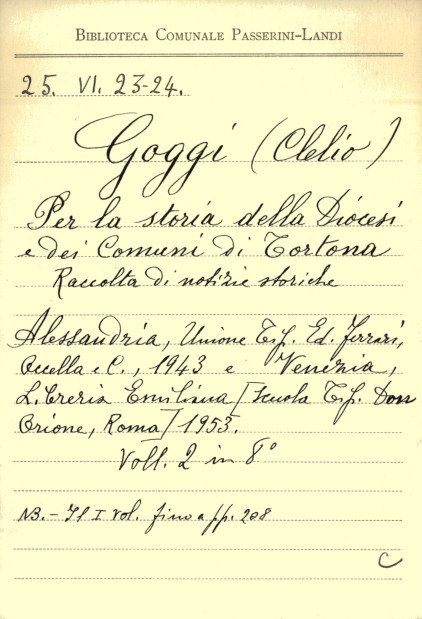 BIBLIOTECA COMUNALE PASSERINI-LANDI
25. VI. 23-24.
Goggi (Clelio)
Per la storia della Diocesi
e dei Comuni di Tortona
Raccolta di notizie storiche
Alessandria, Unione Tip. Ed. Ferrari,
Occella e C., 1943 e Venezia,
Libreria Emiliana [Scuola Tip. Don
Orione, Roma] 1953.
Voll. 2 in 8°
NB. - Il I vol. fino a pp. 208
C